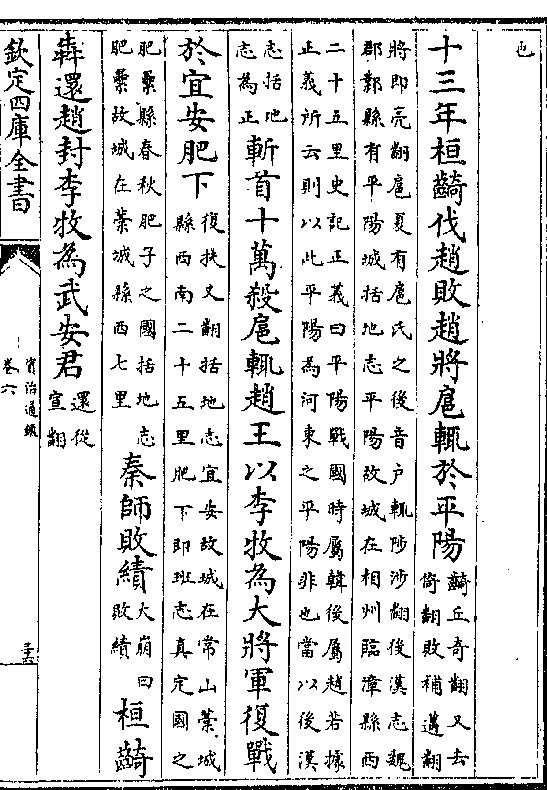 也
十三年桓齮伐趙敗趙將扈輒於平陽
齮丘奇翻又去
倚翻敗補邁翻
將即亮翻扈夏有扈氏之後音户輒陟涉翻後漢志魏
郡鄴縣有平陽城括地志平陽故城在相州臨漳縣西
二十五里史記正義曰平陽戰國時屬韓後屬趙若據
正義所云則以此平陽為河東之平陽非也當以後漢
志括地
志為正
斬首十萬殺扈輒趙王以李牧為大將軍復戰
於宜安肥下
復扶又翻括地志宜安故城在常山藁城
縣西南二十五里肥下即班志真定國之
肥纍縣春秋肥子之國括地志
肥纍故城在藁城縣西七里
秦師敗績
大崩曰
敗績
桓齮
奔還趙封李牧為武安君
還從
宣翻
欽定四庫全書
資治通鑑
卷六